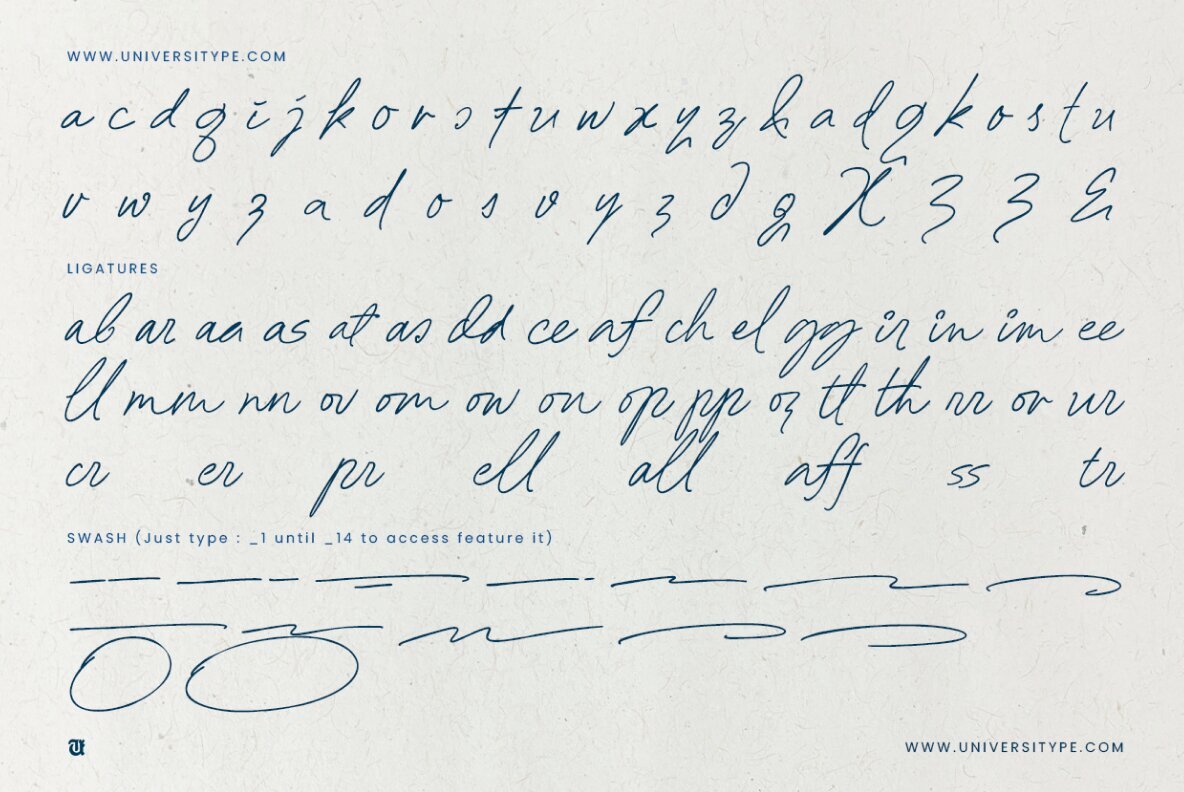 WWW.UNIVERSITYPE.COM
a c d g i j k o r s t u w x y z & a d g k o s t u
v w y z a d o s v y z d g X Z Z &
LIGATURES
ab ar aa as at as dd ce af ch el gg ir in im ee
ll mm nn ov om ow on op pp oz tt th rr or ur
cr er pr ell all aff ss tr
SWASH (Just type : _1 until _14 to access feature it)
WWW.UNIVERSITYPE.COM